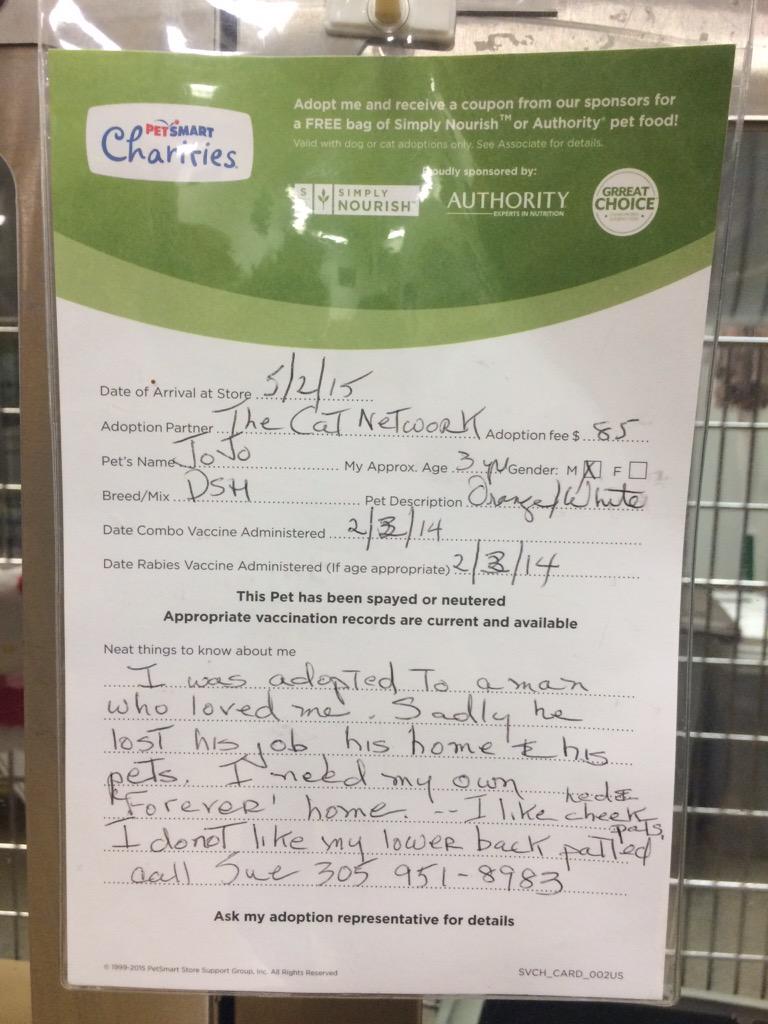 PETSMART
Charities
Adopt me and receive a coupon from our sponsors for
a FREE bag of Simply Nourish™ or Authority® pet food!
Valid with dog or cat adoptions only. See Associate for details.
Proudly sponsored by:
SIMPLY
NOURISH™
AUTHORITY
EXPERTS IN NUTRITION
GRREAT
CHOICE
Date of Arrival at Store 5/2/15
Adoption Partner The CaT NeTwork Adoption fee $ 85
Pet's Name JoJo My Approx. Age 3 yr Gender: M X F
Breed/Mix DSH Pet Description Orange/White
Date Combo Vaccine Administered 2/3/14
Date Rabies Vaccine Administered (If age appropriate) 2/3/14
This Pet has been spayed or neutered
Appropriate vaccination records are current and available
Neat things to know about me
I was adopTed To a man
who loved me. Sadly he
losT his job, his home & his
pets. I need my own
"Forever' home. -- I like head & cheek pats,
I do noT like my lower back paTTed
call Sue 305 951-8983
Ask my adoption representative for details
© 1999-2015 PetSmart Store Support Group, Inc. All Rights Reserved
SVCH_CARD_002US